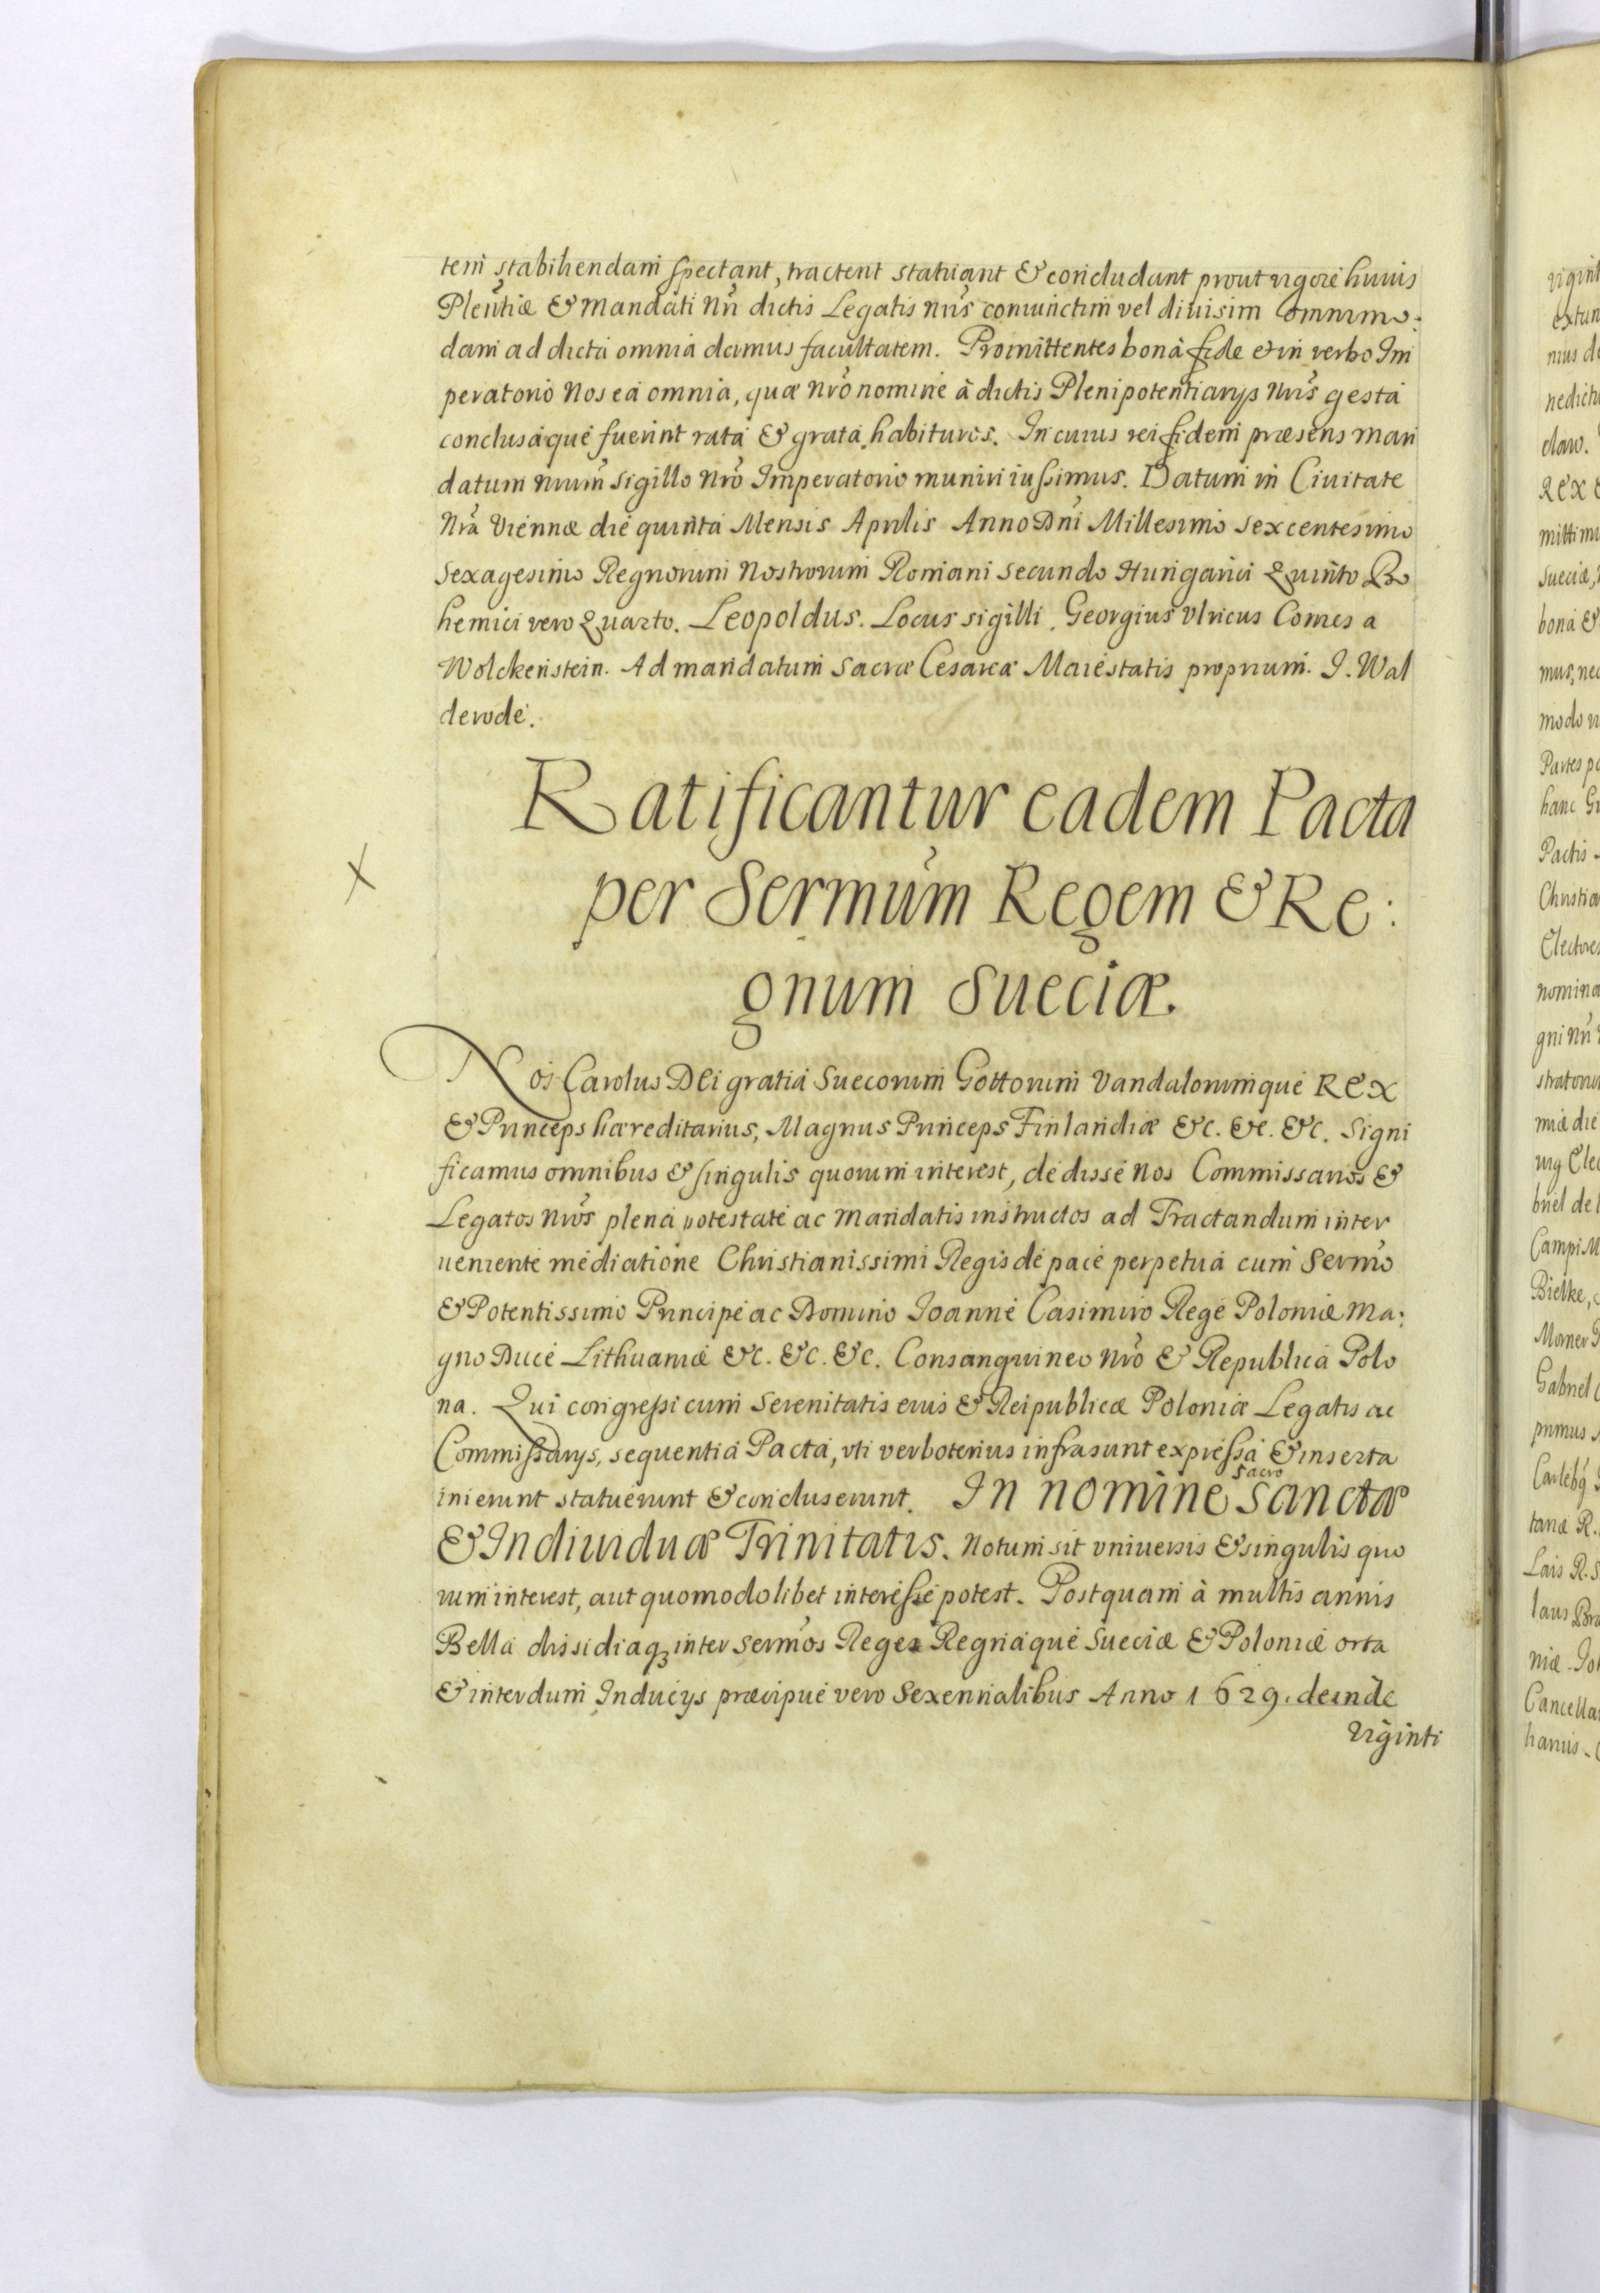 tem stabiliendam spectant, tractent statuant & concludant prout vigore huius
Plentiæ & Mandati Nri dictis Legatis Nris coniunctim vel diuisim omnimo:
dam ad dicta omnia damus facultatem. Promittentes bonâ fide et in verbo Im
peratorio Nos ea omnia, quæ Nro nomine à dictis Plenipotentiarijs Nris gesta
conclusaque fuerint rata & grata habituros. In cuius rei fidem præsens man
datum Nrum sigillo Nro Imperatorio muniri iussimus. Datum in Ciuitate
Nra Viennæ die quinta Mensis Aprilis Anno Dni Millesimo sexcentesimo
sexagesimo Regnorum Nostrorum Romani secundo Hungarici Quinto Bo
hemici vero Quarto. Leopoldus. Locus sigilli. Georgius Vlricus Comes a
Wolckenstein. Ad mandatum sacræ Cesareæ Maiestatis proprium. J. Wal
derode.
Ratificantur eadem Pacta
X
per Sermum Regem & Re:
gnum Sueciæ.
Nos Carolus DEi gratia Suecorum Gottorum Vandalorumque REX
& Princeps hæreditarius, Magnus Princeps Finlandiæ &c. &c. &c. Signi
ficamus omnibus & singulis quorum interest, dedisse nos Commissarios &
Legatos Nros plena potestate ac Mandatis instructos ad Tractandum inter
ueniente mediatione Christianissimi Regis de pace perpetua cum Sermo
& Potentissimo Principe ac Domino Joanne Casimiro Rege Poloniæ Ma:
gno Duce Lithuaniæ &c. &c. &c. Consanguineo Nro & Republica Polo
na. Qui congressi cum Serenitatis eius & Reipublicæ Poloniæ Legatis ac
Commissarijs, sequentia Pacta, vti verbotenus infra sunt expressa & inserta
inierunt statuerunt & concluserunt. In nomine sacro sanctæ
& Indiuiduæ Trinitatis. Notum sit vniuersis & singulis quo
rum interest, aut quomodolibet interesse potest. Postquam à multis annis
Bella dissidiaq; inter Sermos Reges Regnaque Sueciæ & Poloniæ orta
& interdum Inducijs præcipue vero Sexennalibus Anno 1629. deinde
viginti